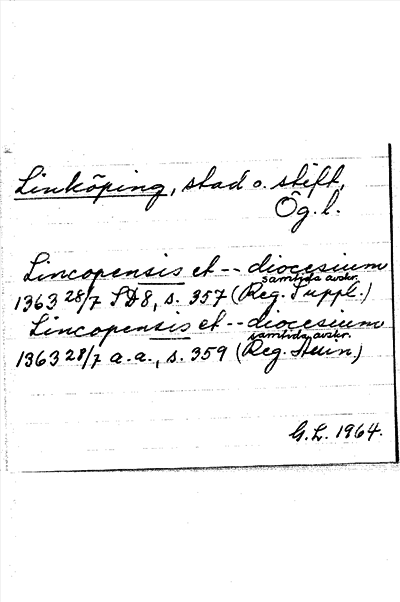 Linköping, stad o. stift,
Ög. l.
Lincopensis et -- diocesium
samtida avskr.
1363 28/7 SD8, s. 357 (Reg. Suppl.)
Lincopensis et -- diocesium
samtida avskr.
1363 28/7 a.a., s. 359 (Reg. )
G.L. 1964.